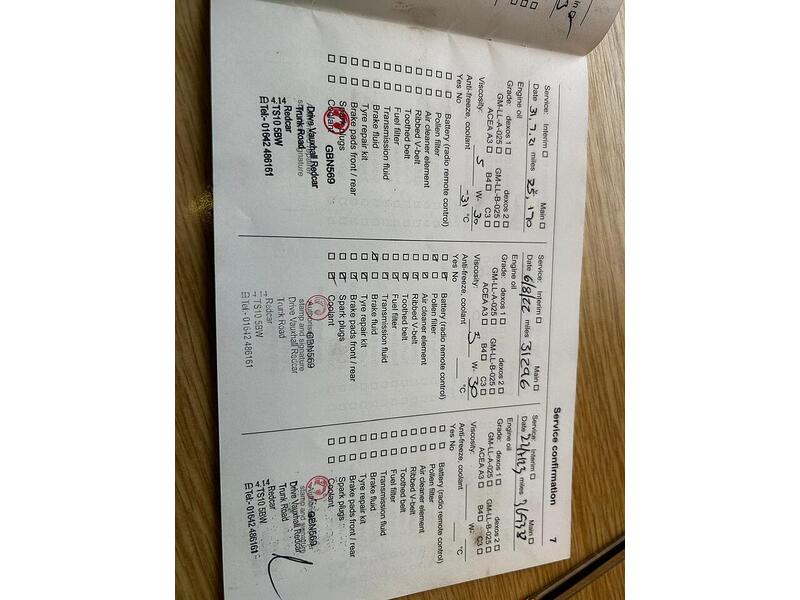 Service confirmation
7
Service: Interim ☐ Main ☐
Date 31.7.21 miles 25,170
Engine oil
Grade: dexos 1 ☐ dexos 2 ☐
GM-LL-A-025 ☐ GM-LL-B-025 ☐
ACEA A3 ☐ B4 ☐ C3 ☐
Viscosity: 5 W- 30
Anti-freeze, coolant -31 °C
Yes No
☐ ☐ Battery (radio remote control)
☐ ☐ Pollen filter
☐ ☐ Air cleaner element
☐ ☐ Ribbed V-belt
☐ ☐ Toothed belt
☐ ☐ Fuel filter
☐ ☐ Transmission fluid
☐ ☐ Brake fluid
☐ ☐ Tyre repair kit
☐ ☐ Brake pads front / rear
☐ ☐ Spark plugs
☐ ☐ Coolant
GBN569
Drive Vauxhall Redcar
Trunk Road
Redcar
TS10 5BW
Tel:- 01642 486161
Service: Interim ☐ Main ☐
Date 6/8/22 miles 31296
Engine oil
Grade: dexos 1 ☐ dexos 2 ☐
GM-LL-A-025 ☐ GM-LL-B-025 ☐
ACEA A3 ☐ B4 ☐ C3 ☐
Viscosity: 5 W- 30
Anti-freeze, coolant °C
Yes No
Battery (radio remote control)
Pollen filter
Air cleaner element
Ribbed V-belt
Toothed belt
Fuel filter
Transmission fluid
Brake fluid
Tyre repair kit
Brake pads front / rear
Spark plugs
Coolant
GBN569
stamp and signature
Drive Vauxhall Redcar
Trunk Road
Redcar
TS10 5BW
Tel:- 01642 486161
Service: Interim ☐ Main ☐
Date miles
Engine oil
Grade: dexos 1 ☐ dexos 2 ☐
GM-LL-A-025 ☐ GM-LL-B-025 ☐
ACEA A3 ☐ B4 ☐ C3 ☐
Viscosity: W-
Anti-freeze, coolant °C
Yes No
☐ ☐ Battery (radio remote control)
☐ ☐ Pollen filter
☐ ☐ Air cleaner element
☐ ☐ Ribbed V-belt
☐ ☐ Toothed belt
☐ ☐ Fuel filter
☐ ☐ Transmission fluid
☐ ☐ Brake fluid
☐ ☐ Tyre repair kit
☐ ☐ Brake pads front / rear
☐ ☐ Spark plugs
☐ ☐ Coolant
GBN569
stamp and signature
Drive Vauxhall Redcar
Trunk Road
Redcar
TS10 5BW
Tel:- 01642 486161